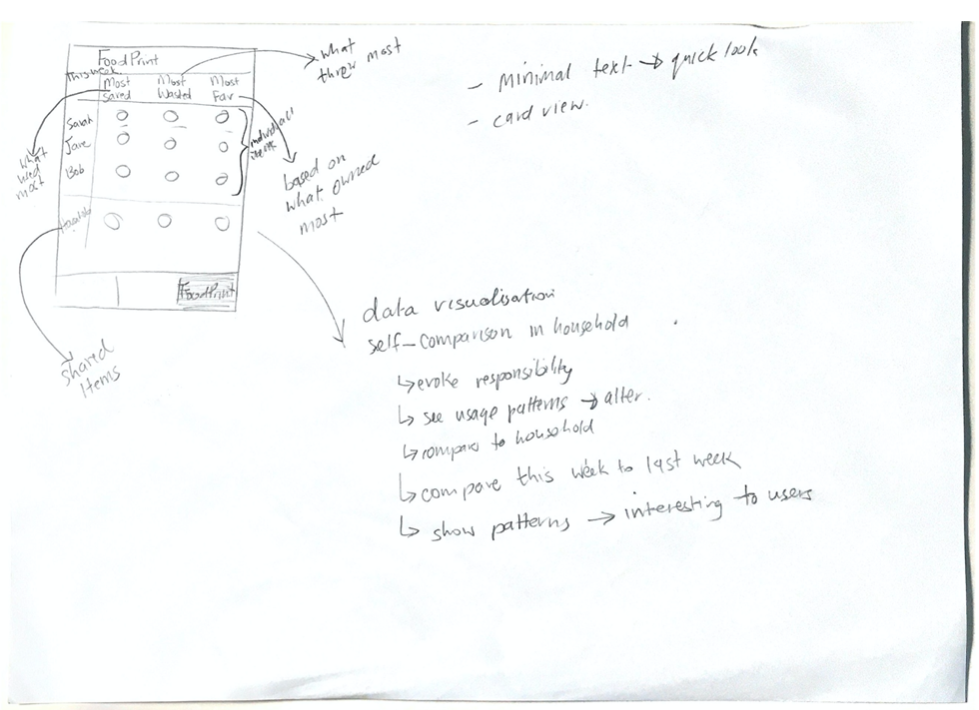 FoodPrint
This week
Most Saved
Most Wasted
Most Fav
Sarah
Jane
Bob
Household
FoodPrint
what
threw most
what
used
most
individual
items
based on
what owned
most
shared
items
- minimal text → quick look
- card view.
data visualisation
self-comparison in household
↳ evoke responsibility
↳ see usage patterns → alter.
↳ compare to household
↳ compare this week to last week
↳ show patterns → interesting to users